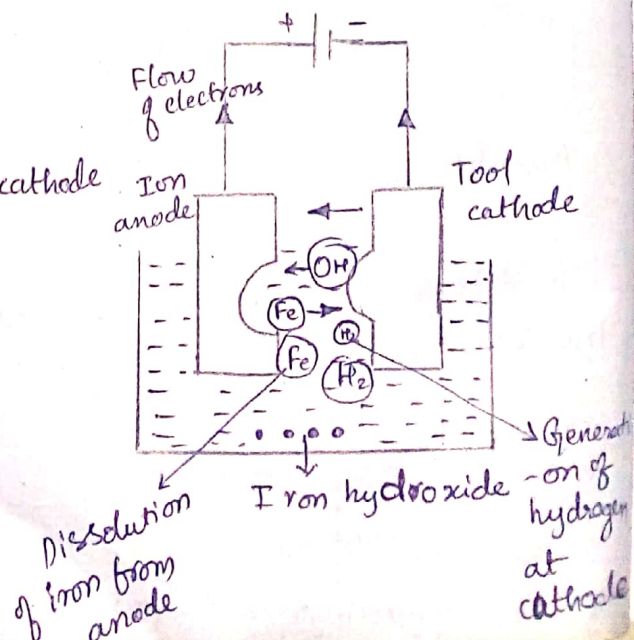 + -
Flow
of electrons
cathode
Ion
anode
Tool
cathode
OH
Fe
H₂
Fe
H₂
Generati
-on of
hydrogen
at
cathode
Iron hydroxide
Dissolution
of iron from
anode